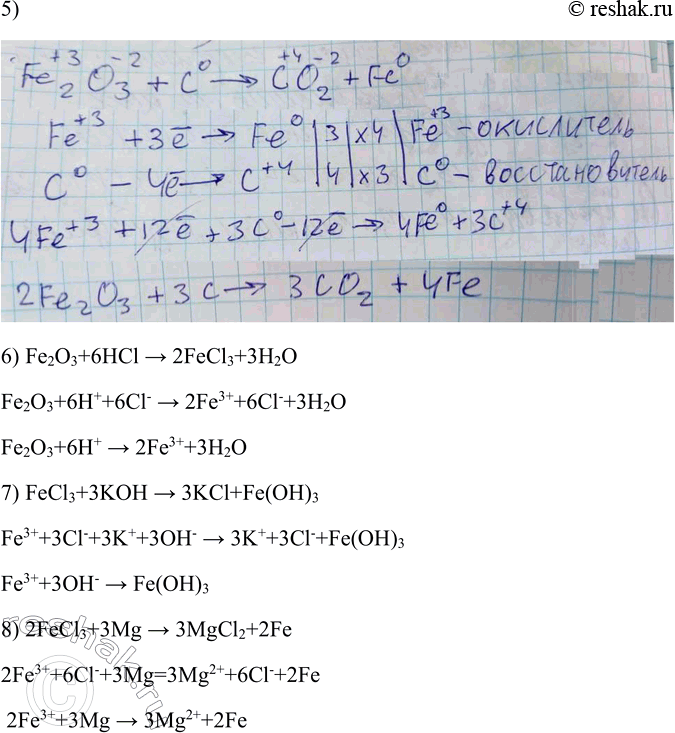 5)
© reshak.ru
Fe₂⁺³O₃⁻² + C⁰ → C⁺⁴O₂⁻² + Fe⁰
Fe⁺³ + 3ē → Fe⁰ | 3 | x4 | Fe⁺³ - окислитель
C⁰ - 4ē → C⁺⁴ | 4 | x3 | C⁰ - восстановитель
4Fe⁺³ + 12ē + 3C⁰ - 12ē → 4Fe⁰ + 3C⁺⁴
2Fe₂O₃ + 3C → 3CO₂ + 4Fe
6) Fe₂O₃+6HCl → 2FeCl₃+3H₂O
Fe₂O₃+6H⁺+6Cl⁻ → 2Fe³⁺+6Cl⁻+3H₂O
Fe₂O₃+6H⁺ → 2Fe³⁺+3H₂O
7) FeCl₃+3KOH → 3KCl+Fe(OH)₃
Fe³⁺+3Cl⁻+3K⁺+3OH⁻ → 3K⁺+3Cl⁻+Fe(OH)₃
Fe³⁺+3OH⁻ → Fe(OH)₃
8) 2FeCl₃+3Mg → 3MgCl₂+2Fe
2Fe³⁺+6Cl⁻+3Mg=3Mg²⁺+6Cl⁻+2Fe
2Fe³⁺+3Mg → 3Mg²⁺+2Fe
reshak.ru
©